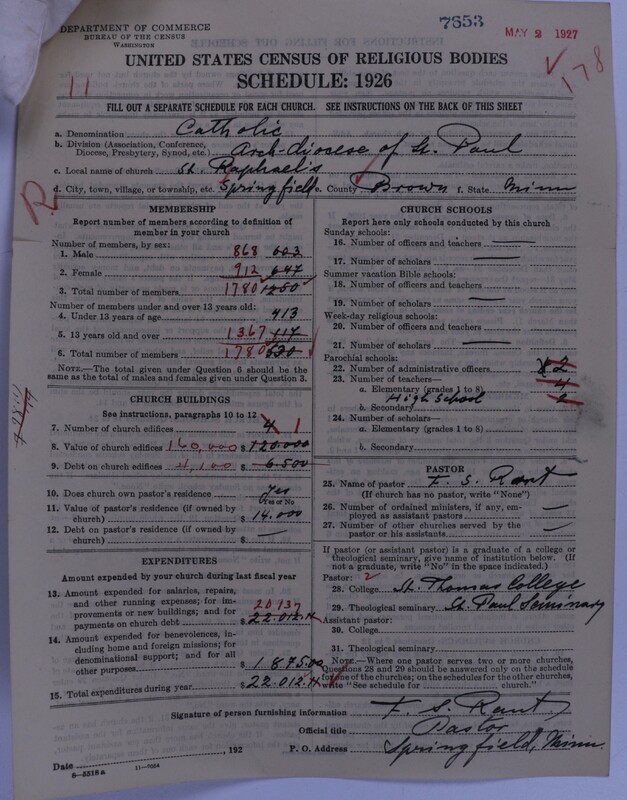 7653
MAY 2 1927
DEPARTMENT OF COMMERCE
BUREAU OF THE CENSUS
WASHINGTON
178
UNITED STATES CENSUS OF RELIGIOUS BODIES
11
SCHEDULE: 1926
FILL OUT A SEPARATE SCHEDULE FOR EACH CHURCH. SEE INSTRUCTIONS ON THE BACK OF THIS SHEET
a. Denomination Catholic
b. Division (Association, Conference, Diocese, Presbytery, Synod, etc.) Arch-diocese of St. Paul
c. Local name of church St. Raphael's
d. City, town, village, or township, etc. Springfield e. County Brown f. State Minn
R
MEMBERSHIP
Report number of members according to definition of
member in your church
Number of members, by sex:
1. Male 868 603
2. Female 912 647
3. Total number of members 1780 1250
Number of members under and over 13 years old:
4. Under 13 years of age 413
5. 13 years old and over 1367 117
6. Total number of members 1780 530
NOTE.—The total given under Question 6 should be
the same as the total of males and females given under Question 3.
CHURCH BUILDINGS
See instructions, paragraphs 10 to 12
7. Number of church edifices 4 1
8. Value of church edifices 160,000 $ 120.000
9. Debt on church edifices 4,100 $ 6.500
10. Does church own pastor's residence Yes
Yes or No
11. Value of pastor's residence (if owned by
church) $ 14.000
12. Debt on pastor's residence (if owned by
church) $ —
EXPENDITURES
Amount expended by your church during last fiscal year
13. Amount expended for salaries, repairs,
and other running expenses; for im-
provements or new buildings; and for
payments on church debt 20137 $ 22.012.
14. Amount expended for benevolences,
including home and foreign missions; for
denominational support; and for all
other purposes $ 1875.00
15. Total expenditures during year $ 22.012.
CHURCH SCHOOLS
Report here only schools conducted by this church
Sunday schools:
16. Number of officers and teachers —
17. Number of scholars —
Summer vacation Bible schools:
18. Number of officers and teachers
19. Number of scholars —
Week-day religious schools:
20. Number of officers and teachers
21. Number of scholars —
Parochial schools:
22. Number of administrative officers 2
23. Number of teachers—
a. Elementary (grades 1 to 8) 4
High School
b. Secondary 2
24. Number of scholars—
a. Elementary (grades 1 to 8)
b. Secondary
PASTOR
25. Name of pastor F. S. Rant
(If church has no pastor, write "None")
26. Number of ordained ministers, if any, em-
ployed as assistant pastors —
27. Number of other churches served by the
pastor or his assistants —
If pastor (or assistant pastor) is a graduate of a college or
theological seminary, give name of institution below. (If
not a graduate, write "No" in the space indicated.)
Pastor: 2
28. College St. Thomas College
29. Theological seminary St. Paul Seminary
Assistant pastor:
30. College
31. Theological seminary
NOTE.—Where one pastor serves two or more churches,
Questions 28 and 29 should be answered only on the schedule
for one of the churches; on the schedules for the other churches,
write "See schedule for church."
Signature of person furnishing information F. S. Rant
Official title Pastor
Date , 192 P. O. Address Springfield, Minn.
8—5518a 11—9324